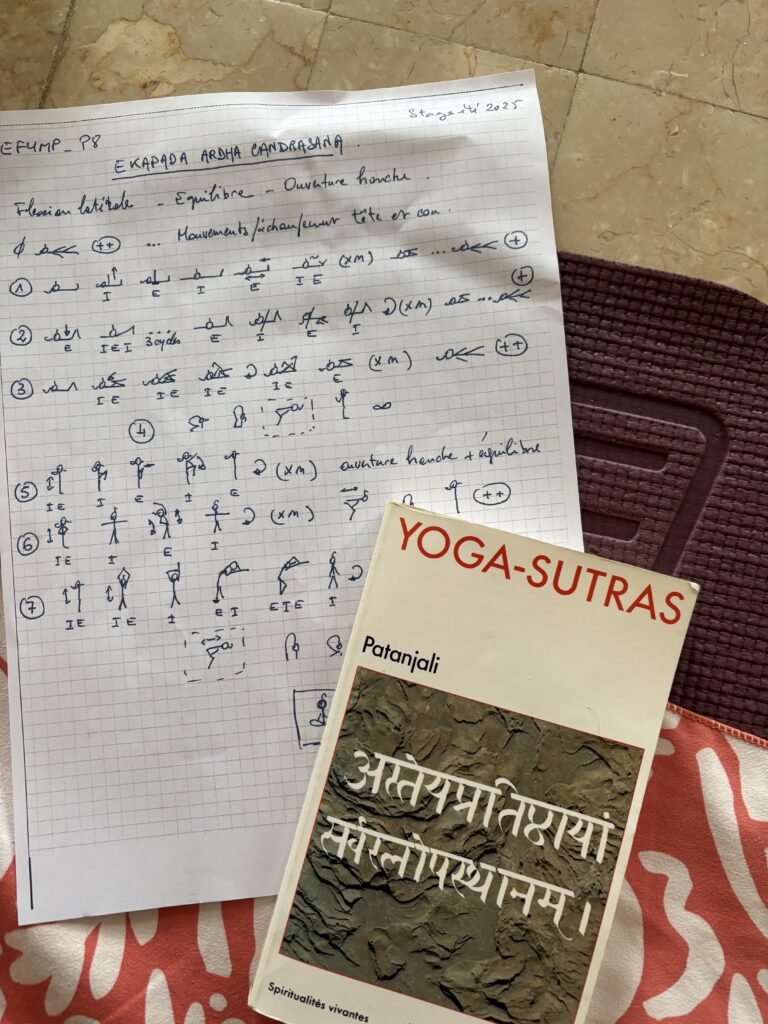 EFYMP_P8
Stage été 2025
EKAPADA ARDHA CANDRASANA.
Flexion latérale - Equilibre - Ouverture hanche.
++ ... Mouvements/échauffement tête et cou.
1 I E I E I E (x m) ... +
2 E I E I 3 cycles E I E I (x m) ... +
3 I E I E I E I E E (x m) ++
4 ∞
5 I E I E I E (x m) ouverture hanche + équilibre
6 I E I E I (x m) ++
7 I E I E I E I E I E I
YOGA-SUTRAS
Patanjali
अस्तेयप्रतिष्ठायां
सर्वरत्नोपस्थानम्।
Spiritualités vivantes